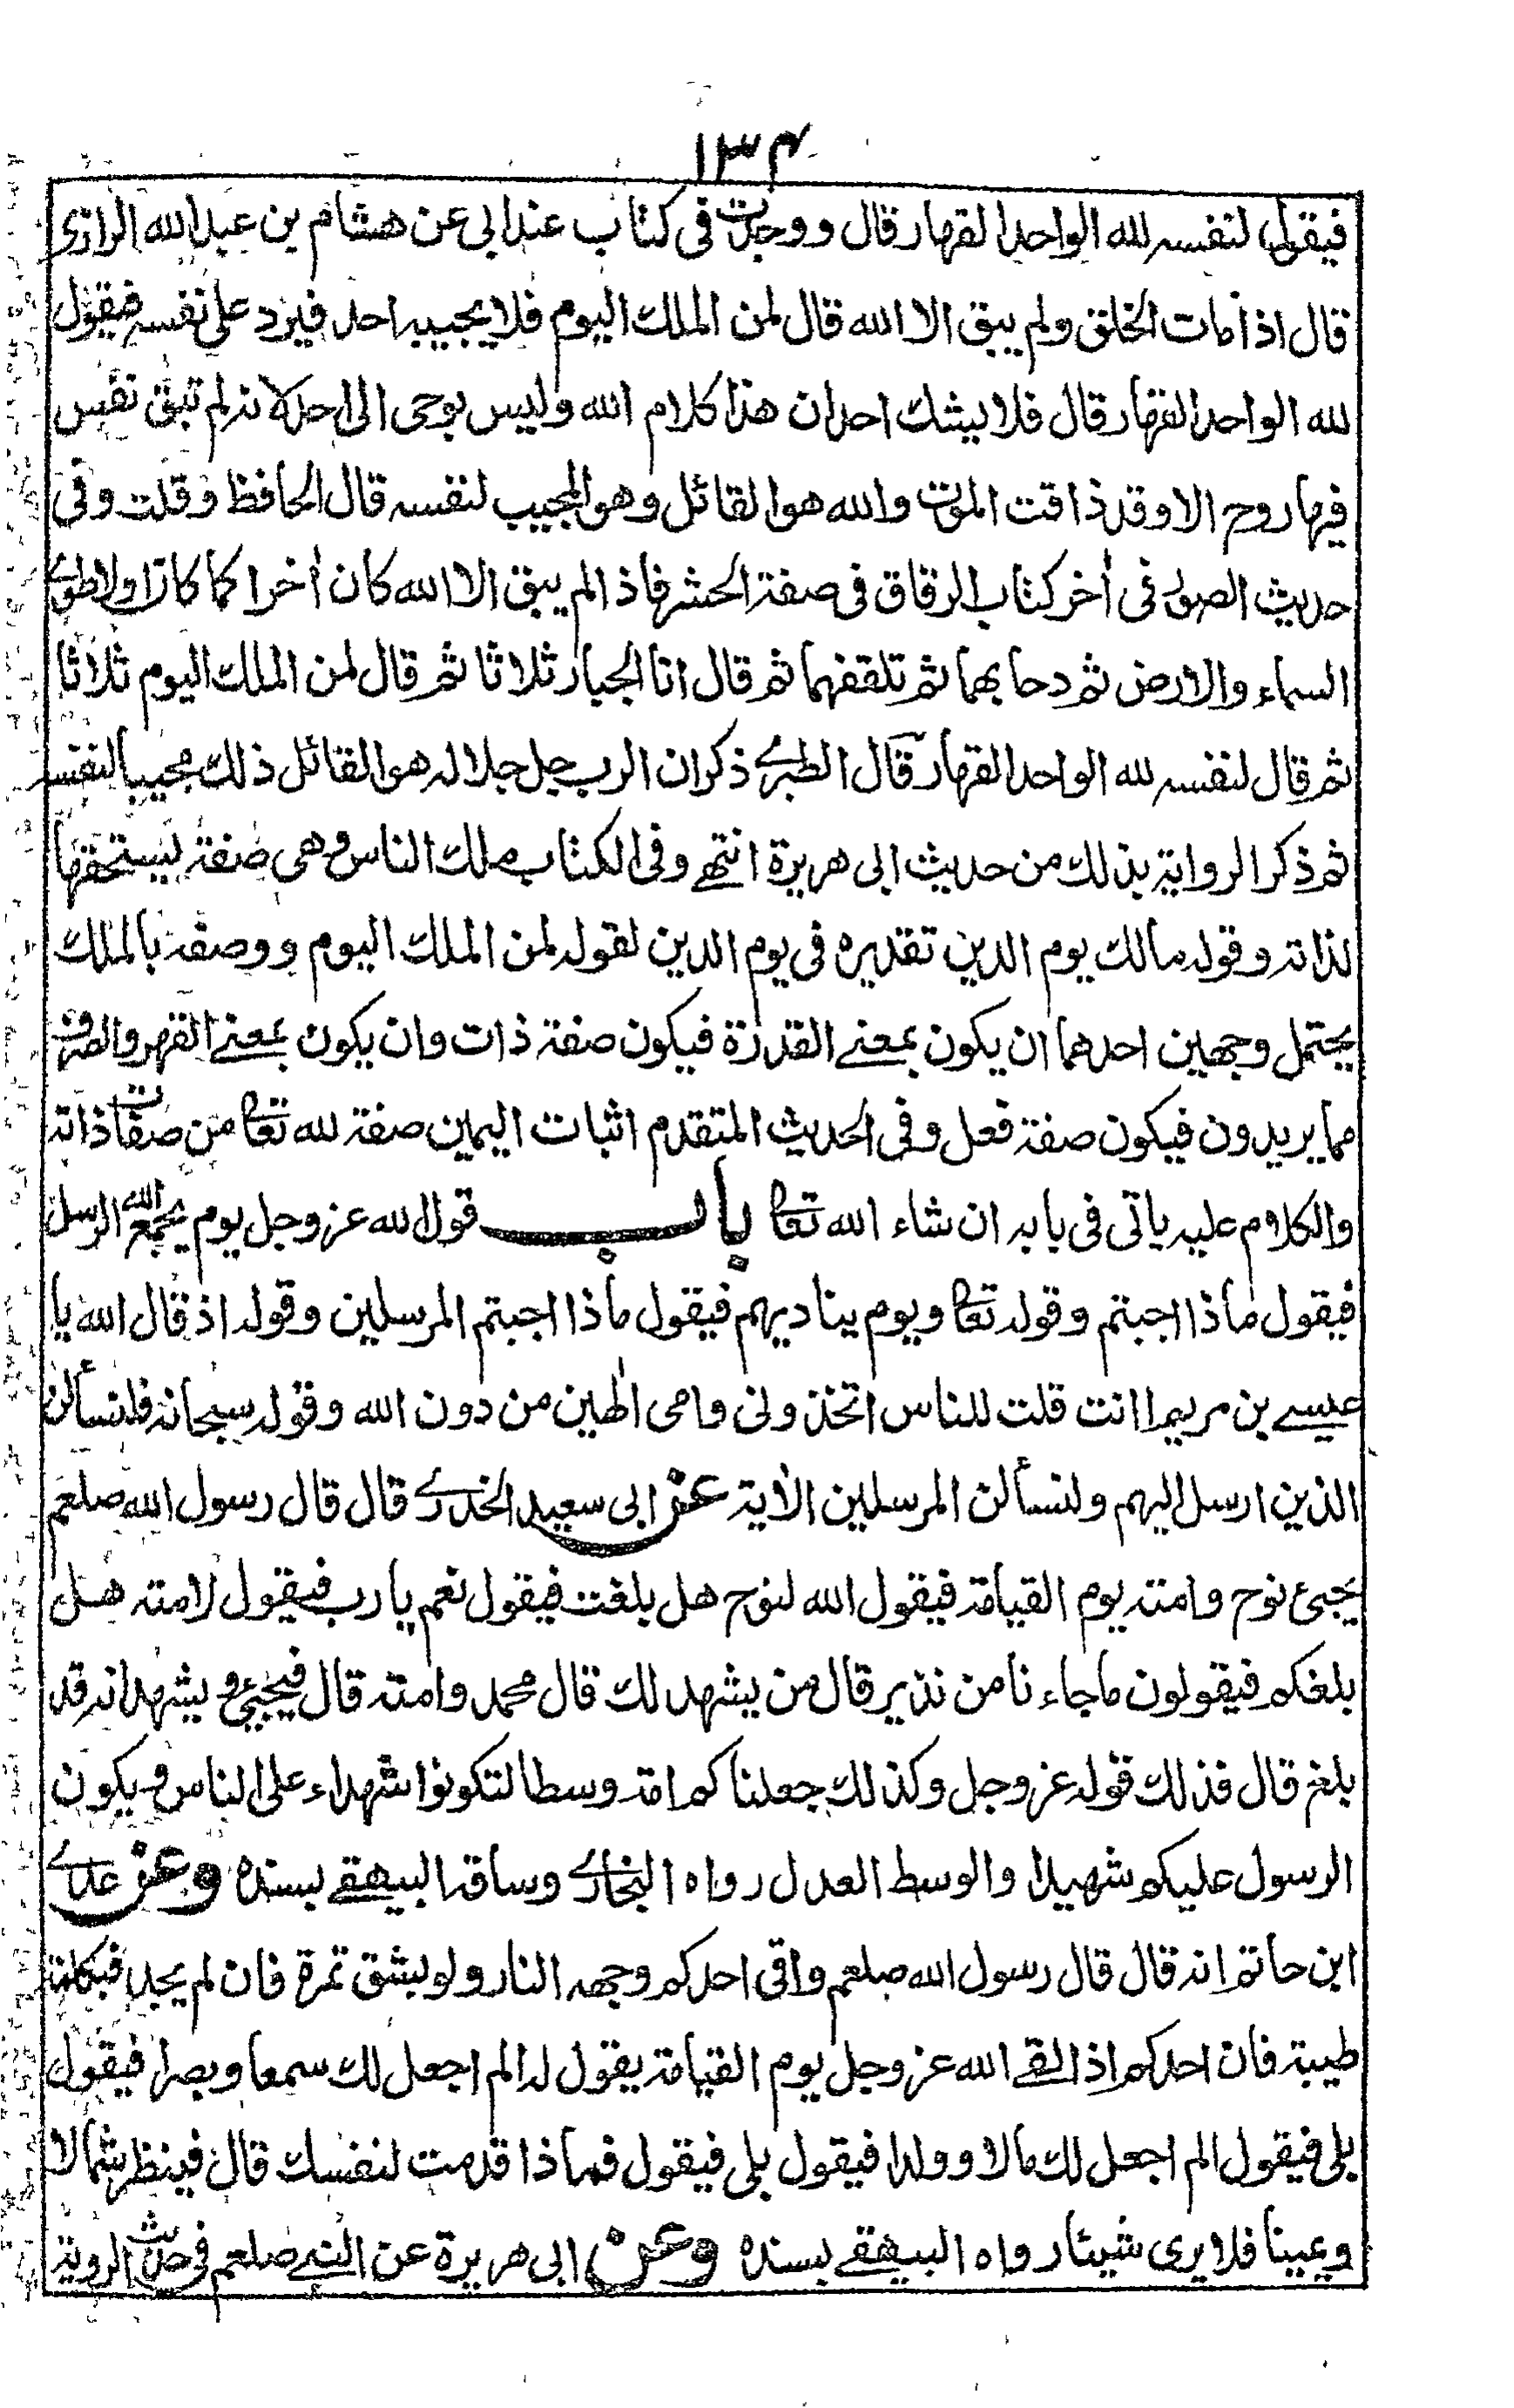 ١٣٤
فيقول لنفسه لله الواحد القهار قال ووجدت فى كتاب عند ابى عن هشام بن عبد الله الرازى
قال اذا مات الخلق ولم يبق الا الله قال لمن الملك اليوم فلا يجيبه احد فيرد على نفسه فيقول
لله الواحد القهار قال فلا يشك احد ان هذا كلام الله وليس بوحى الى احد لانه لم تبق نفس
فيها روح الا وقد ذاقت الموت والله هو القائل وهو المجيب لنفسه قال الحافظ وقلت وفى
حديث الصور فى أخر كتاب الرقاق فى صفة الحشر فاذا لم يبق الا الله كان أخرا كما كان اولا طوى
السماء والارض ثم دحا بهما ثم تلقفهما ثم قال انا الجبار ثلاثا ثم قال لمن الملك اليوم ثلاثا
ثم قال لنفسه لله الواحد القهار قال الطبرے ذكر ان الرب جل جلاله هو القائل ذلك مجيبا لنفسه
ثم ذكر الرواية بذلك من حديث ابى هريرة انتهے وفى الكتاب ملك الناس وهى صفة يستحقها
لذاته وقوله مالك يوم الدين تقديره فى يوم الدين لقوله لمن الملك اليوم ووصفه بالملك
يحتمل وجهين احدهما ان يكون بمعنے القدرة فيكون صفة ذات وان يكون بمعنے القهر والصرف
مما يريدون فيكون صفة فعل وفى الحديث المتقدم اثبات اليمين صفة لله تعا من صفات ذاته
والكلام عليه ياتى فى بابه ان شاء الله تعا باب قول الله عز وجل يوم يجمع الله الرسل
فيقول ماذا اجبتم وقوله تعا ويوم يناديهم فيقول ماذا اجبتم المرسلين وقوله اذ قال الله يا
عيسے بن مريم اانت قلت للناس اتخذونى وامى الٰهين من دون الله وقوله سبحانه فلنسألن
الذين ارسل اليهم ولنسألن المرسلين الاٰية عن ابى سعيد الخدرے قال قال رسول الله صلعم
يجىء نوح وامته يوم القيامة فيقول الله لنوح هل بلغت فيقول نعم يا رب فيقول لامته هل
بلغكم فيقولون ما جاءنا من نذير قال من يشهد لك قال محمد وامته قال فيجىء ويشهد انه قد
بلغ قال فذلك قوله عز وجل وكذلك جعلناكم امة وسطا لتكونوا شهداء على الناس ويكون
الرسول عليكم شهيدا والوسط العدل رواه البخارے وساقه البيهقے بسنده وعن عدے
ابن حاتم انه قال قال رسول الله صلعم واقى احدكم وجهه النار ولو بشق تمرة فان لم يجد فبكلمة
طيبة فان احدكم اذا لقے الله عز وجل يوم القيامة يقول له الم اجعل لك سمعا وبصرا فيقول
بلى فيقول الم اجعل لك مالا وولدا فيقول بلى فيقول فماذا قدمت لنفسك قال فينظر شمالا
ويمينا فلا يرى شيئا رواه البيهقے بسنده وعن ابى هريرة عن النبے صلعم فى حديث الروية